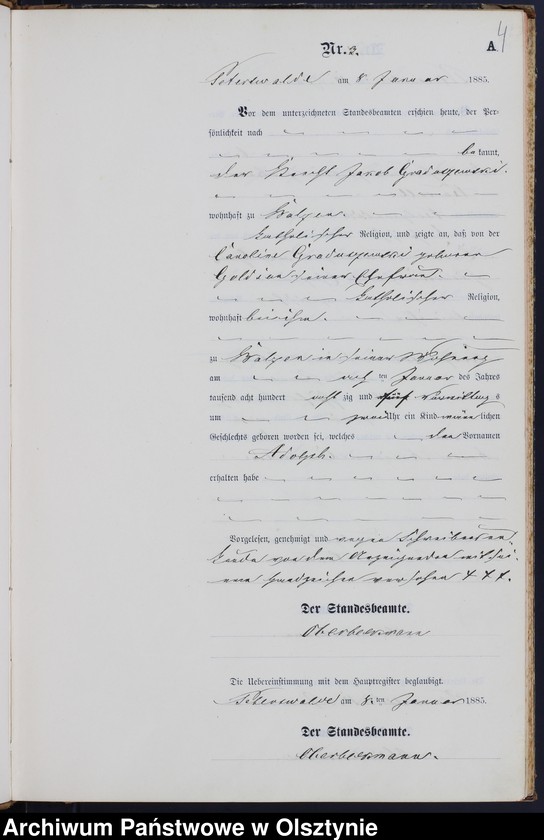 4
Nr. 3. A
Peterswalde am 8 Januar 1885.
Vor dem unterzeichneten Standesbeamten erschien heute, der Per-
sönlichkeit nach
bekannt,
der Knecht Jacob
wohnhaft zu
katholischer Religion, und zeigte an, daß von der
Caroline geboren
seiner Ehefrau.
katholischer Religion,
wohnhaft bei ihm.
zu in seiner Wohnung
am acht ten Januar des Jahres
tausend acht hundert acht zig und fünf Vormittags
um zwei Uhr ein Kind männlichen
Geschlechts geboren worden sei, welches den Vornamen
Adolph.
erhalten habe
Vorgelesen, genehmigt und wegen Schreibensun-
kunde von dem Anzeigenden mit sei-
nem Handzeichen versehen + + +.
Der Standesbeamte.
Die Uebereinstimmung mit dem Hauptregister beglaubigt.
Peterswalde am 8. ten Januar 1885.
Der Standesbeamte.
Archiwum Państwowe w Olsztynie